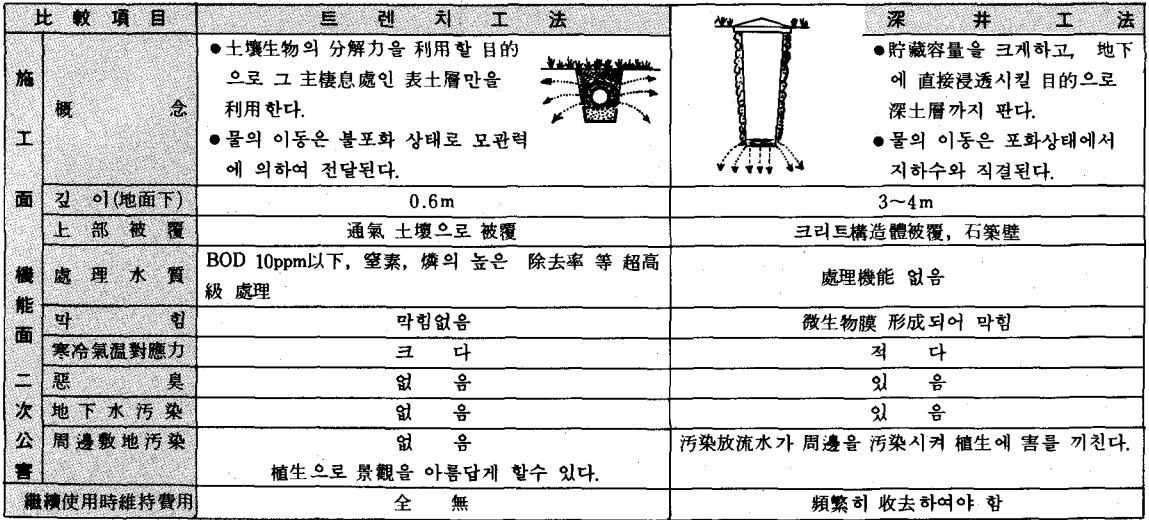 比較項目 트렌치工法 深井工法
施工面
概念
●土壤生物의 分解力을 利用할 目的
으로 그 主棲息處인 表土層만을
利用한다.
●물의 이동은 불포화 상태로 모관력
에 의하여 전달된다.
●貯藏容量을 크게하고, 地下
에 直接浸透시킬 目的으로
深土層까지 판다.
●물의 이동은 포화상태에서
지하수와 직결된다.
깊이(地面下) 0.6m 3~4m
上部被覆 通氣 土壤으로 被覆 크리트構造體被覆, 石築壁
機能面
處理水質
BOD 10ppm以下, 窒素, 燐의 높은 除去率 等 超高
級 處理
處理機能 없음
막힘 막힘없음 微生物膜 形成되어 막힘
寒冷氣溫對應力 크다 적다
二次公害
惡臭 없음 있음
地下水汚染 없음 있음
周邊敷地汚染 없음 汚染放流水가 周邊을 汚染시켜 植生에 害를 끼친다.
植生으로 景觀을 아름답게 할수 있다.
繼續使用時維持費用 全無 頻繁히 收去하여야 함